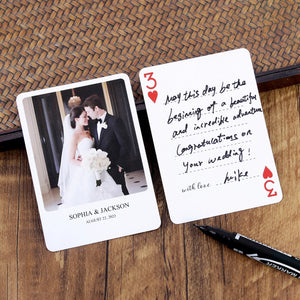 SOPHIA & JACKSON
AUGUST 22, 2025
3
May this day be the
beginning of a beautiful
and incredible adventure
Congratulations on
Your wedding!
with love
Mike
3